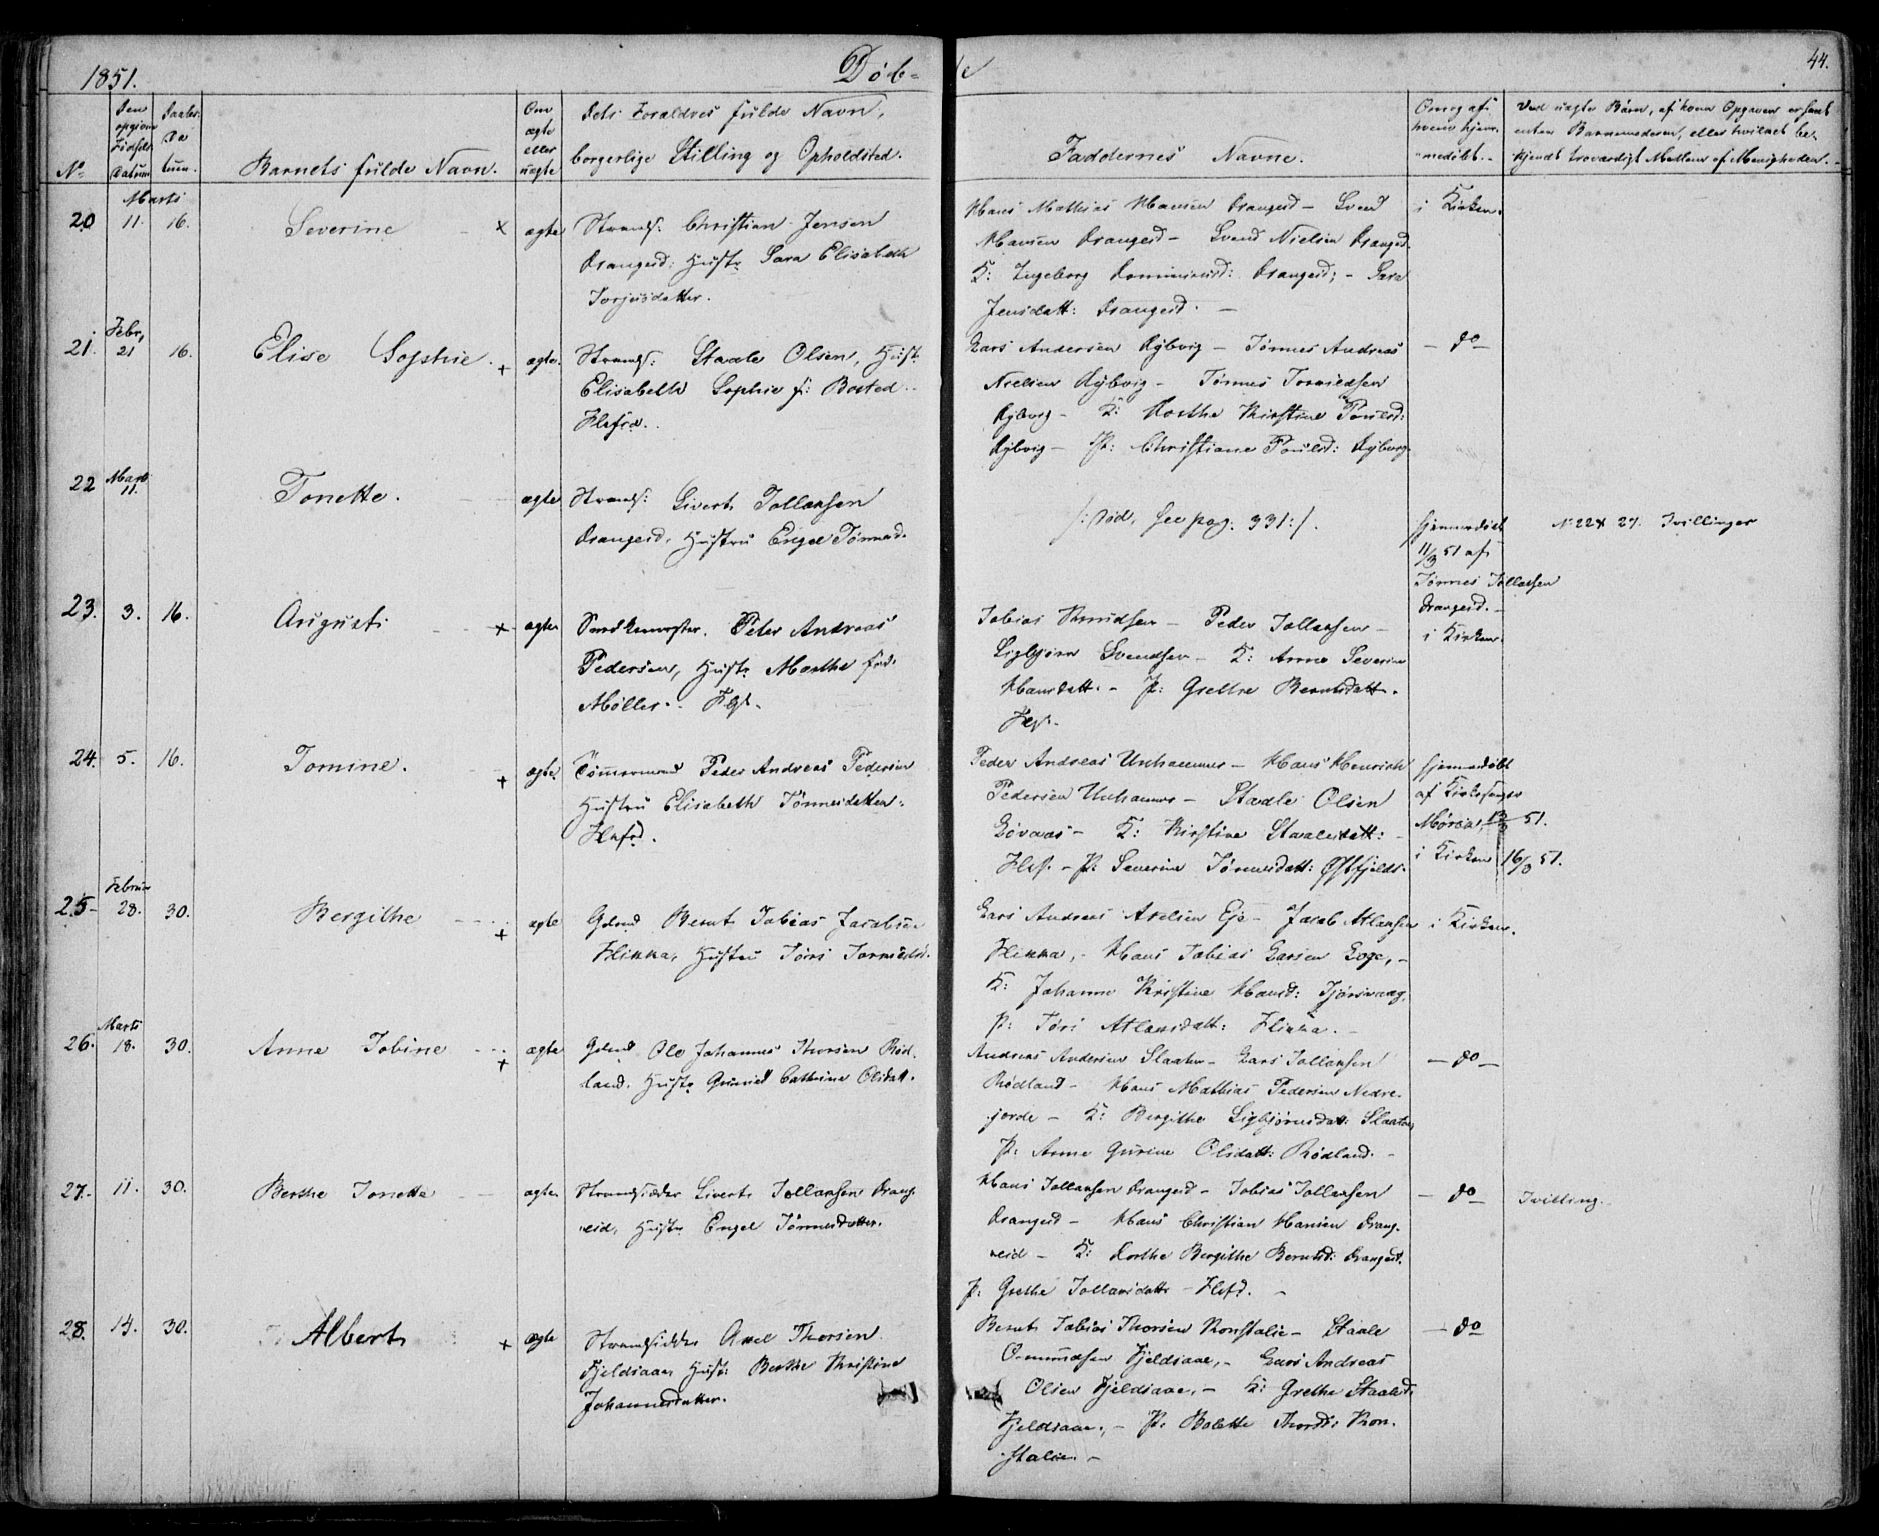 1851. Døb- te 44.
No
Den opgivne Fødsels Datum
Daabs Datum.
Barnets fulde Navn.
Om ægte eller uægte
Dets Forældres fulde Navn,
borgerlige Stilling og Opholdsted.
Faddernes Navne.
Om og af hvem hjemmedøbt.
Ved uægte Børn, af hvem Opgaven er skeet
enten Barnemoderen, eller hvilket be-
kjendt troværdigt Mellem af Menigheden.
Marts
20 11. 16. Severine × ægte
Strands: Christian Jensen
Drangeid: Hustr Sara Elisabeth
Torjusdatter.
Hans Mathias Hansen Drangeid - Svend
Hansen Drangeid - Svend Nielsen Drangd
K: Ingeborg Drangeid; - Sara
Jensdatt: Drangeid. -
i Kirken.
Febr,
21. 21 16. Elise Sophie. + ægte.
Strands: Staale Olsen, Hust:
Elisabeth Sophie f: Bosted.
Flefjd.
Lars Andersen Rybvig - Tønnes Andreas
Nielsen Rybvig - Tønnes Tormodsen
Rybvig - K: Dorthe Kirstine Poulsd:
Rybvig - P: Christiane Poulsd: Rybvig.
- do -
22 Marts 11. Tonette. ægte
Strands: Sivert Tollaksen
Drangeid, Hustru Engel Tønnesd.
/: Død, see pag. 331:/.
hjemmedøbt
11/3 51 af
Tønnes Tollaksen
Drangeid. -
No 22 & 27. Tvillinger
23. 3. 16. August. × ægte
Peter Andreas
Pedersen, Hustr Marthe fød.
Møller. Flef.
Tobias Knudsen - Peder Tollaksen -
Sigbjørn Svendsen - K: Anne Severine
Hansdatt. - P: Grethe Berntsdatt.
Flef.
i Kirken.
24. 5. 16. Tomine. + ægte
Tømmermand Peder Andreas Pedersen
Hustru Elisabeth Tønnesdatter:
Flefjd.
Peder Andreas Urhammer - Hans Henrich
Pedersen Urhammer - Staale Olsen
Løvaas - K: Kirstine Staalesdatt: -
Flef. - P: Severine Tønnesdatt: Øssfjeld.
hjemmedøbt
af Kirkesanger
51.
i Kirken 16/3 51.
Februar
25- 28. 30. Bergithe + ægte
Gdmd Bernt Tobias Jacobsen
Flikka, Hustru Tøri Tormodsd.
Lars Andreas Axelsen Eje - Jacob Atlaksen
Flikka, - Hans Tobias Larsen Loge, -
K: Johanne Kristine Hansd: Tjørsvaag,
P: Tøri Atlaksdatt: Flikka. -
i Kirken.
Marts
26. 18. 30. Anne Tobine + ægte
Gdmd Ole Johannes Thorsen Rød-
land. Hustr Guniel Cathrine Olsdatt.
Andreas Andersen Slaaten - Lars Tollaksen
Rødland - Hans Mathias Pedersen Nedre-
jorde - K: Bergithe Sigbjørnsdatt: Slaatten
P: Anne Gurine Olsdatt: Rødland. -
- do -
27. 11. 30. Berthe Tonette ægte
Strandsidder Sivert Tollaksen Drang-
eid, Hustr Engel Tønnesdatter.
Hans Tollaksen Drangeid - Tobias Tollaksen
Drangeid - Hans Christian Hansen Drang-
eid - K: Dorthe Bergithe Berntsd: Drangeid.
P: Grethe Tollaksdattr - Flefd. -
- do -
Tvilling.
28. 14. 30. Albert + ægte
Strandsidder Axel Thorsen
Fjeldsaae, Hust: Berthe Kristine
Johannesdatter.
Bernt Tobias Thorsen Konstalie - Staale
Omundsen Fjeldsaae, - Lars Andreas
Olsen Fjeldsaae, - K: Grethe Staalsd.
Fjeldsaae, - P: Bolette Thorsd: Kon-
stalie. -
- do